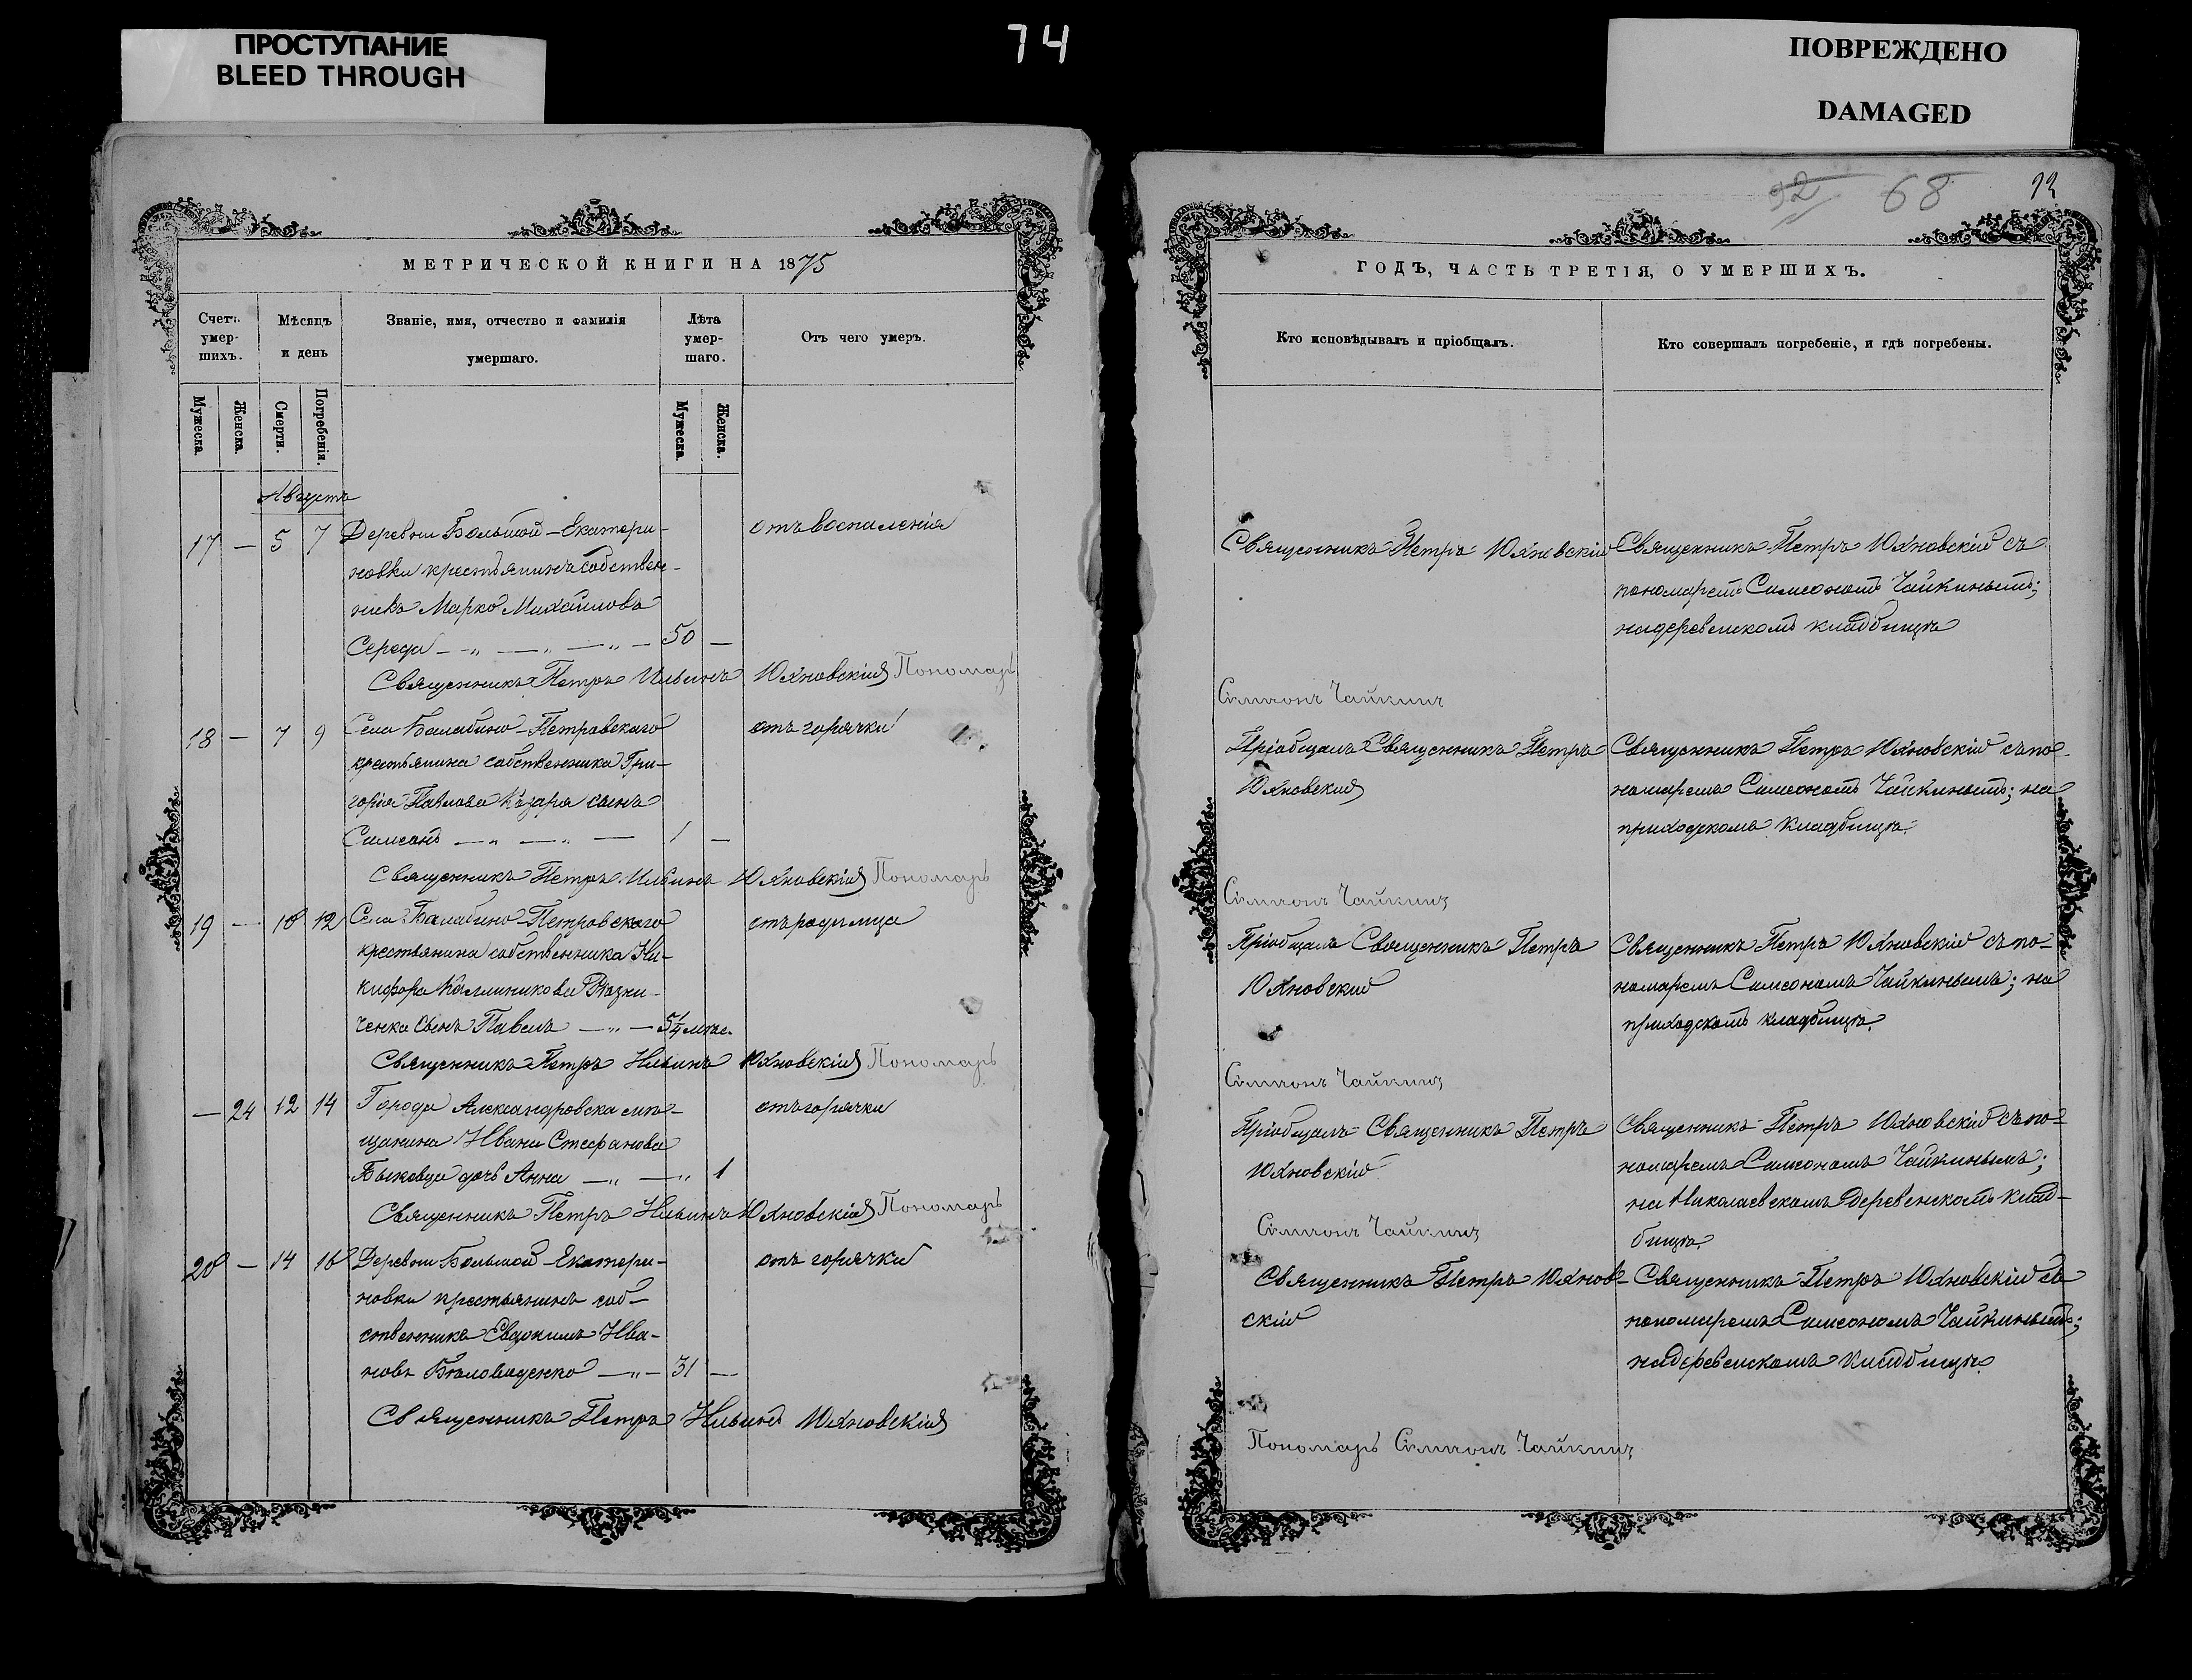 ПРОСТУПАНИЕ
BLEED THROUGH
74
ПОВРЕЖДЕНО
DAMAGED
МЕТРИЧЕСКОЙ КНИГИ НА 1875
Счетъ умер-шихъ.
Мѣсяцъ и день
Званіе, имя, отчество и фамилія умершаго.
Лѣта умер-шаго.
Отъ чего умеръ.
Мужеска.
Женска.
Смерти.
Погребенія.
Мужеска.
Женска.
Августъ
17 — 5 7 Деревни Большой-Екатери- отъ воспаленія
новки крестьянинъ собствен-
никъ Марко Михайловъ
Середа — „ — „ — „ — 50 —
Священникъ Петръ Ильинъ Юхновскій Пономарь
18 — 7 9 Села Балабино-Петровскаго отъ горячки
крестьянина собственника Гри-
горія Павлова Козаря сынъ
Симеонъ — „ — „ — 1 —
Священникъ Петръ Ильинъ Юхновскій Пономарь
19 — 10 12 Села Балабино-Петровскаго отъ родимца
крестьянина собственника Ни-
кифора Калиникова
ченка сынъ Павелъ — „ — 5¼ мѣс.
Священникъ Петръ Ильинъ Юхновскій Пономарь
— 24 12 14 Города Александровска мѣ- отъ горячки
щанина Ивана Стефанова
Быковца дочь Анна — „ — „ 1
Священникъ Петръ Ильинъ Юхновскій Пономарь
20 — 14 16 Деревни Большой-Екатери- отъ горячки
новки крестьянинъ соб-
ственника Евдокимъ Ива-
новъ — „ — 31 —
Священникъ Петръ Ильинъ Юхновскій
92 68
ГОДЪ, ЧАСТЬ ТРЕТІЯ, О УМЕРШИХЪ.
Кто исповѣдывалъ и пріобщалъ.
Кто совершалъ погребеніе, и гдѣ погребены.
Священникъ Петръ Юхновскій Священникъ Петръ Юхновскій съ
пономаремъ Симеономъ Чайкинымъ;
на деревенскомъ кладбищѣ
Симеонъ Чайкинъ
Пріобщалъ Священникъ Петръ Священникъ Петръ Юхновскій съ по-
Юхновскій номаремъ Симеономъ Чайкинымъ; на
приходскомъ кладбищѣ.
Симеонъ Чайкинъ
Пріобщалъ Священникъ Петръ Священникъ Петръ Юхновскій съ по-
Юхновскій номаремъ Симеономъ Чайкинымъ; на
приходскомъ кладбищѣ.
Симеонъ Чайкинъ
Пріобщалъ Священникъ Петръ Священникъ Петръ Юхновскій съ по-
Юхновскій номаремъ Симеономъ Чайкинымъ;
на Николаевскомъ деревенскомъ клад-
Симеонъ Чайкинъ бищѣ.
Священникъ Петръ Юхнов- Священникъ Петръ Юхновскій съ
скій пономаремъ Симеономъ Чайкинымъ;
на деревенскомъ кладбищѣ.
Пономарь Симеонъ Чайкинъ